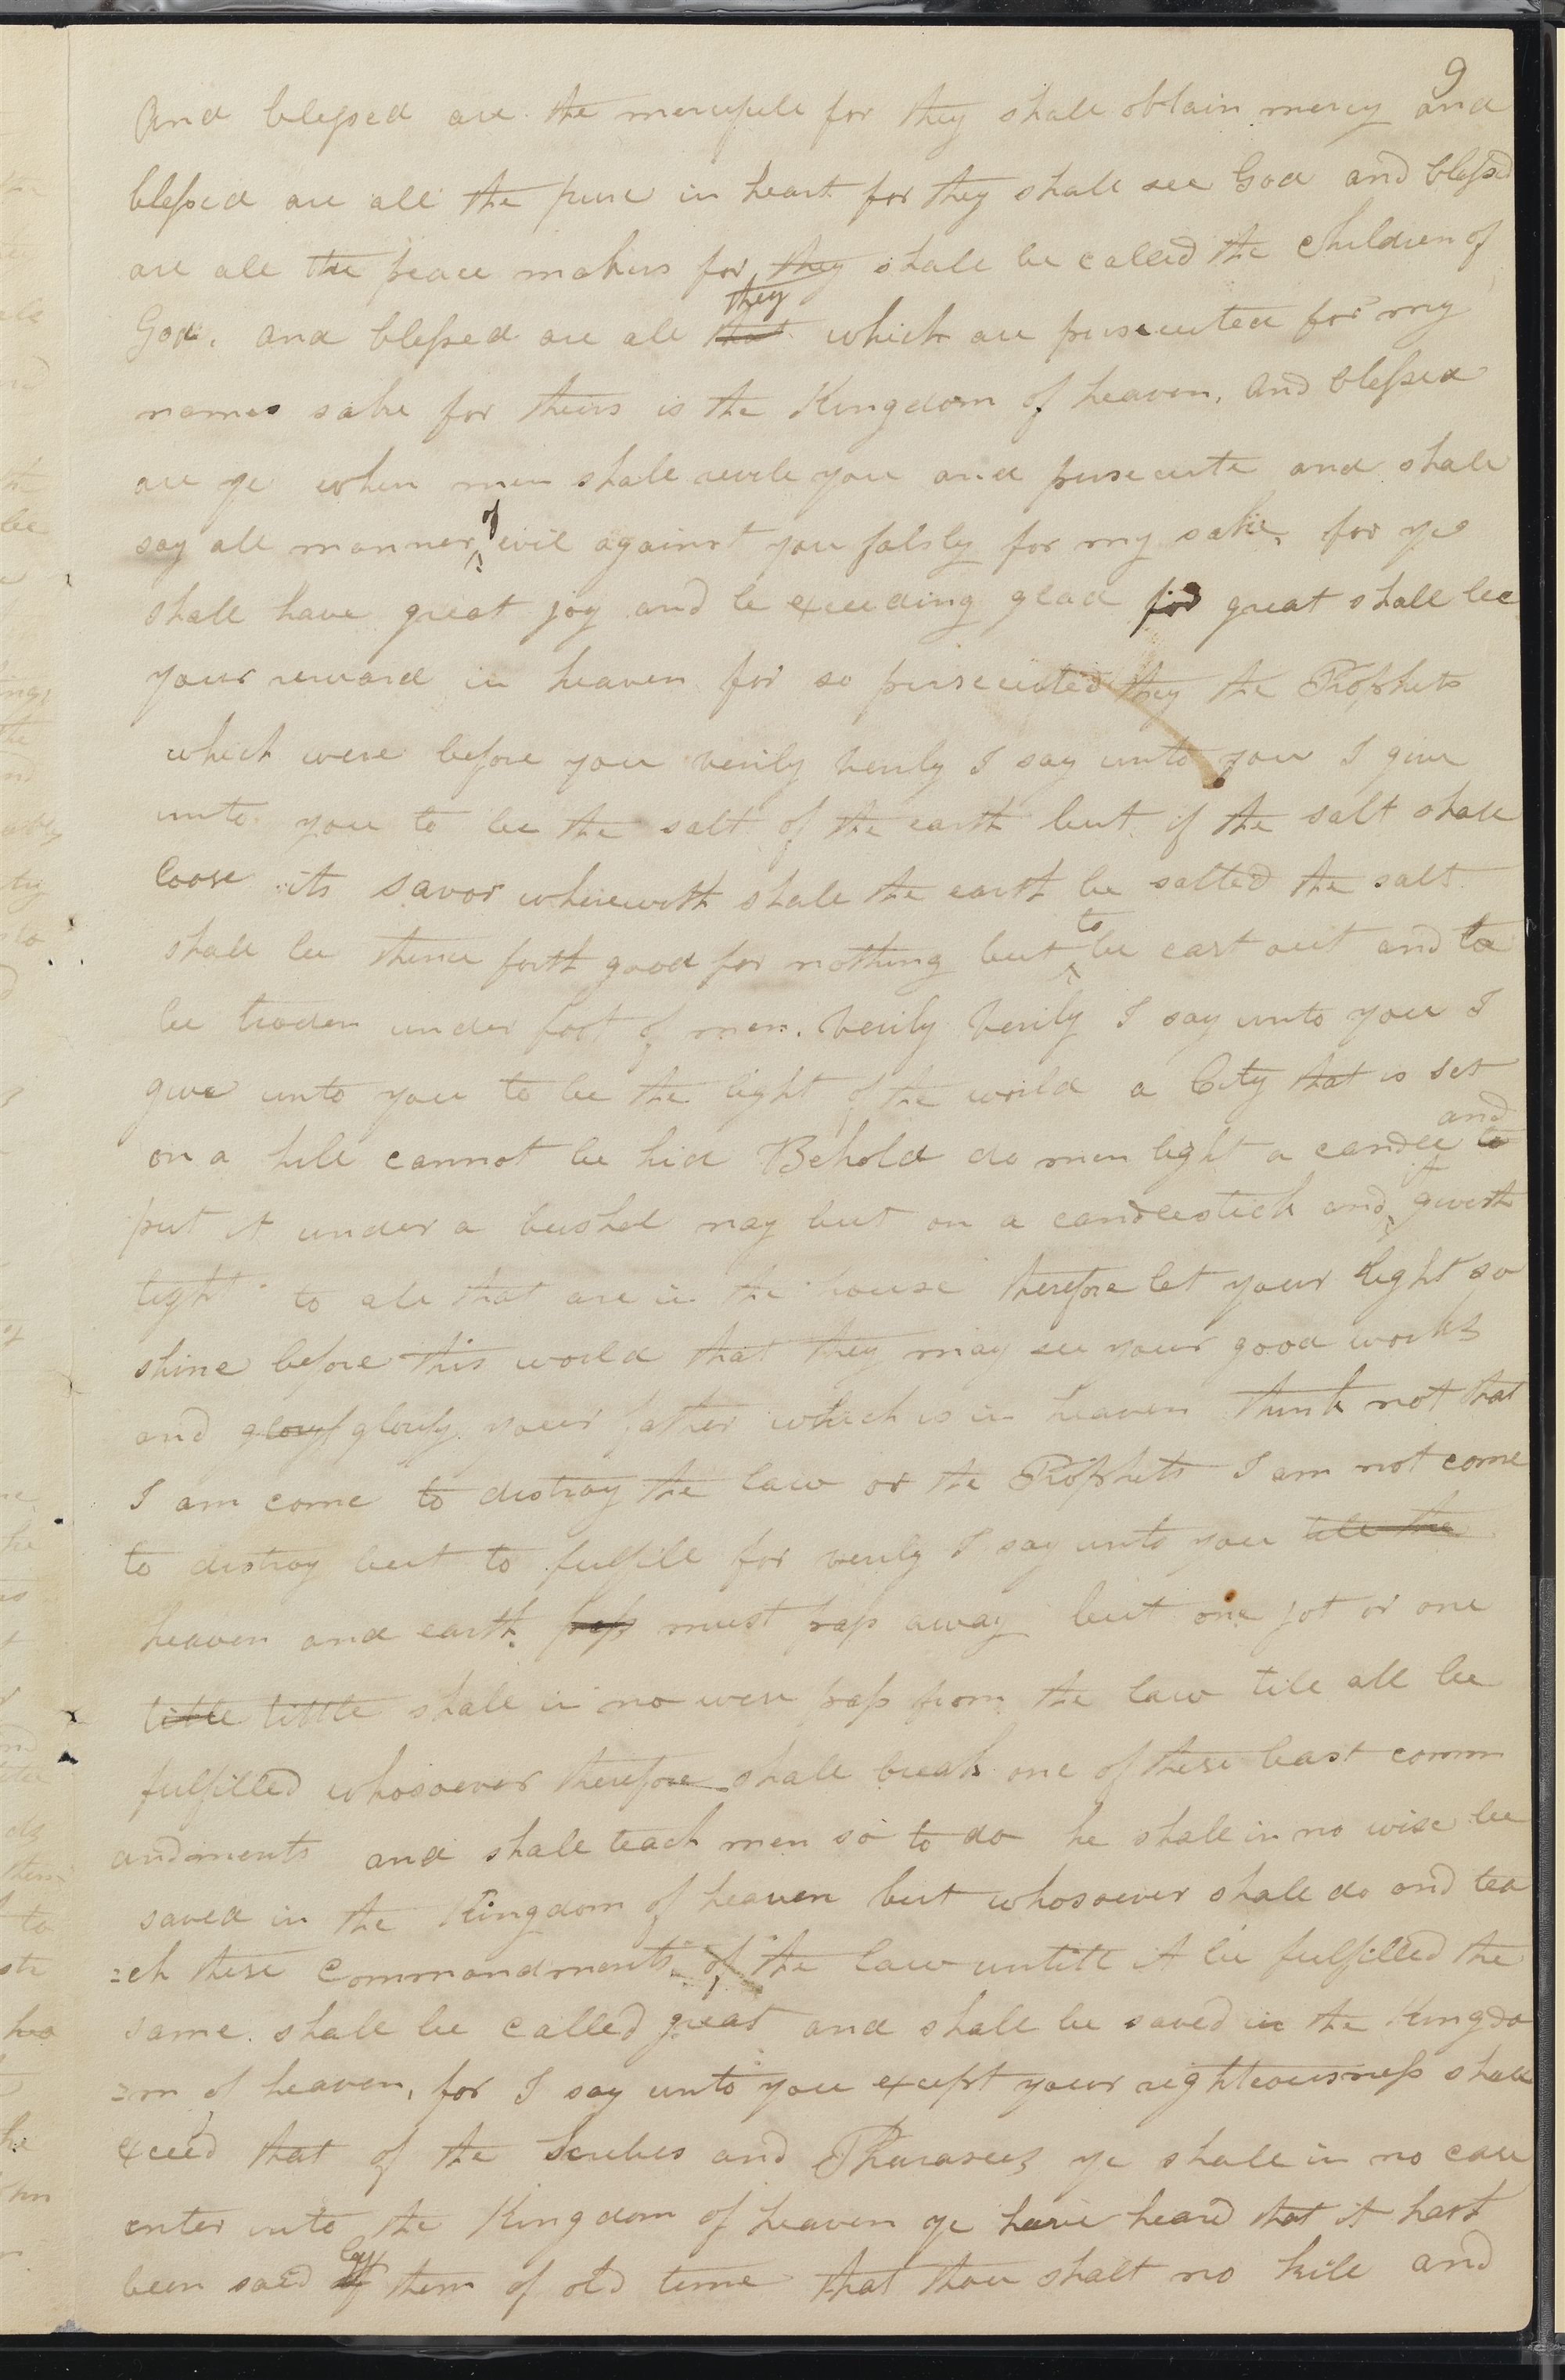 9
And blessed are the mercifull for they shall obtain mercy and
blessed are all the pure in heart for they shall see God and blessed
are all the peace makers for they shall be called the children of
God, and blessed are all that they which are persecuted for my
names sake for theirs is the Kingdom of heaven, and blessed
are ye when men shall revile you and persecute and shall
say all manner of evil against you falsly for my sake, for ye
shall have great joy and be exceeding glad for great shall be
your reward in heaven for so persecuted they the Prophets
which were before you verily verily I say unto you I give
unto you to be the salt of the earth but if the salt shall
loose its savor wherewith shall the earth be salted the salt
shall be thence forth good for nothing but to be cast out and to
be troden under foot of men. Verily Verily I say unto you I
give unto you to be the light of the world a City that is set
on a hill cannot be hid Behold do men light a candle to and
put it under a bushel nay but on a candlestick and it giveth
light to all that are in the house therefore let your light so
shine before this world that they may see your good works
and gloryf glorify your father which is in heaven think not that
I am come to distroy the law or the Prophets I am not come
to distroy but to fulfill for verily I say unto you till the
heaven and earth pass must pass away but one jot or one
tittle tittle shall in no wise pass from the law till all be
fulfilled whosoever therefore shall break one of these least comm
andments and shall teach men so to do he shall in no wise be
saved in the Kingdom of heaven but whosoever shall do and tea
=ch these commandments of the law untill it be fulfilled the
same shall be called great and shall be saved in the Kingdo
=m of heaven, for I say unto you except your righteousness shall
exceed that of the Scribes and Pharasees ye shall in no case
enter into the Kingdom of heaven ye have heard that it hath
been said by them of old time that thou shalt no kill and